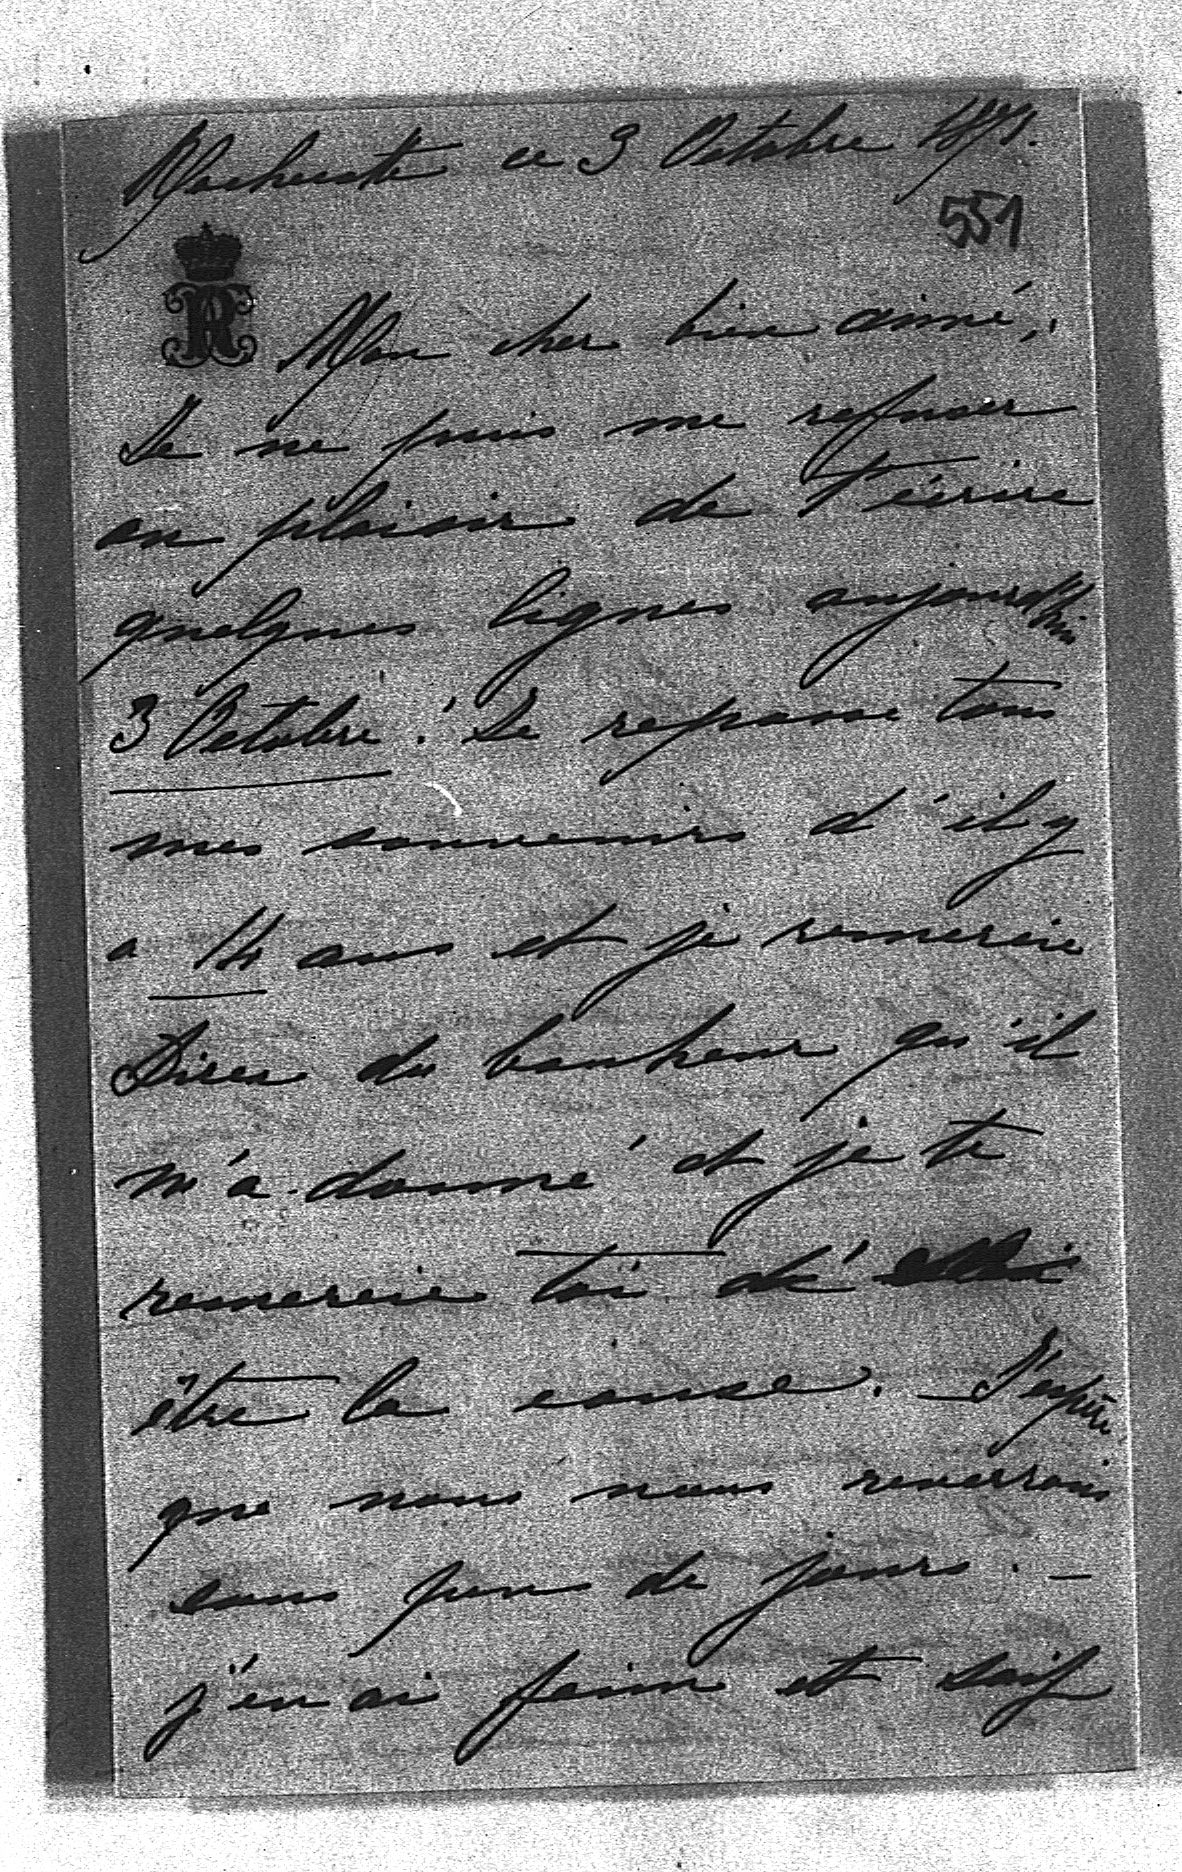 ce 3 Octobre 1871.
551
R
Mon cher bien aimé,
Je ne puis me refuser
au plaisir de t'écrire
quelques lignes aujourd'hui
3 Octobre! Je repasse tous
mes souvenirs d'il y
a 14 ans et je remercie
Dieu du bonheur qu'il
m'a donné et je te
remercie toi de
être la cause. _ J'espère
que nous nous reverrons
sous peu de jours. _
j'en ai faim et soif